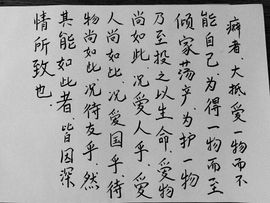 癖者，大抵爱一物而不
能自己，为得一物而至
倾家荡产，为护一物
乃至投之以生命。爱物
尚如此，况爱人乎，爱
人尚如此，况爱国乎，待
物尚如此，况待友乎。然
其能如此者，皆因深
情所致也。